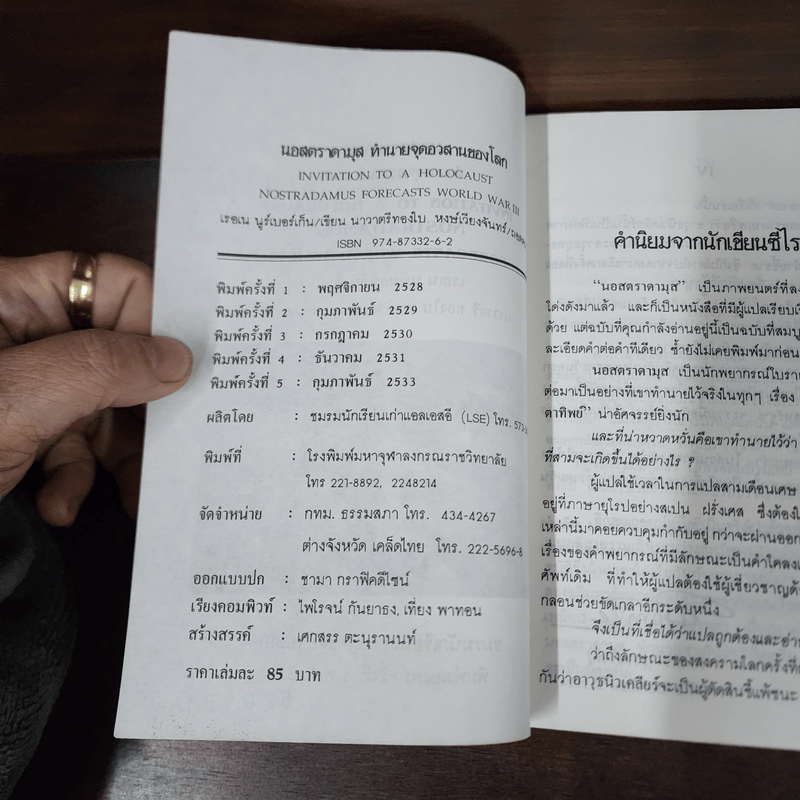 นอสตราดามุส ทำนายจุดอวสานของโลก
INVITATION TO A HOLOCAUST
NOSTRADAMUS FORECASTS WORLD WAR III
เรอเน นูร์เบอร์เก็น/เขียน นาวาตรีทองใบ หงษ์เวียงจันทร์/
ISBN 974-87332-6-2
พิมพ์ครั้งที่ 1 : พฤศจิกายน 2528
พิมพ์ครั้งที่ 2 : กุมภาพันธ์ 2529
พิมพ์ครั้งที่ 3 : กรกฎาคม 2530
พิมพ์ครั้งที่ 4 : ธันวาคม 2531
พิมพ์ครั้งที่ 5 : กุมภาพันธ์ 2533
ผลิตโดย : ชมรมนักเรียนเก่าแอลเอสอี (LSE) โทร.
พิมพ์ที่ : โรงพิมพ์มหาจุฬาลงกรณราชวิทยาลัย
โทร 221-8892, 2248214
จัดจำหน่าย : กทม. ธรรมสภา โทร. 434-4267
ต่างจังหวัด เคล็ดไทย โทร. 222-5696-8
ออกแบบปก : ชามา กราฟิคดีไซน์
เรียงคอมพิวท์ : ไพโรจน์ กันยาธง, เที่ยง พาทอน
สร้างสรรค์ : เศกสรร ตะนุรานนท์
ราคาเล่มละ 85 บาท
คำนิยมจากนักเขียนซีไร
"นอสตราดามุส" เป็นภาพยนตร์ที่ลง
โด่งดังมาแล้ว และก็เป็นหนังสือที่มีผู้แปลเรียบเรี
ด้วย แต่ฉบับที่คุณกำลังอ่านอยู่นี้เป็นฉบับที่สมบู
ละเอียดคำต่อคำทีเดียว ซ้ำยังไม่เคยพิมพ์มาก่อน
นอสตราดามุส เป็นนักพยากรณ์โบรา
ต่อมาเป็นอย่างที่เขาทำนายไว้จริงในทุกๆ เรื่อง
ตาทิพย์" น่าอัศจรรย์ยิ่งนัก
และที่น่าหวาดหวั่นคือเขาทำนายไว้ว่า
ที่สามจะเกิดขึ้นได้อย่างไร ?
ผู้แปลใช้เวลาในการแปลสามเดือนเศษ
อยู่ที่ภาษายุโรปอย่างสเปน ฝรั่งเศส ซึ่งต้องใ
เหล่านี้มาคอยควบคุมกำกับอยู่ กว่าจะผ่านออก
เรื่องของคำพยากรณ์ที่มีลักษณะเป็นคำโคลง
ศัพท์เดิม ที่ทำให้ผู้แปลต้องใช้ผู้เชี่ยวชาญด้
กลอนช่วยขัดเกลาอีกระดับหนึ่ง
จึงเป็นที่เชื่อได้ว่าแปลถูกต้องและอ่า
ว่าถึงลักษณะของสงครามโลกครั้งที่
กันว่าอาวุธนิวเคลียร์จะเป็นผู้ตัดสินชี้แพ้ชนะ